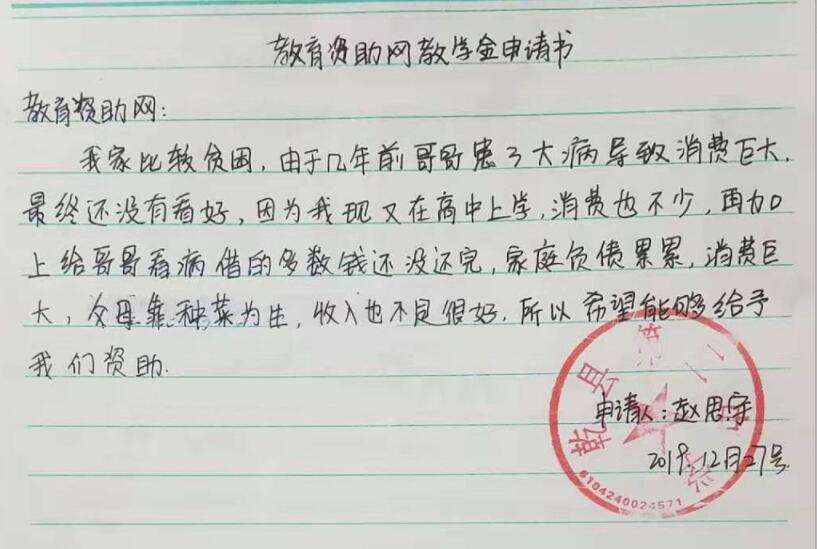 教育资助网教学金申请书
教育资助网:
我家比较贫困,由于几年前哥哥患了大病导致消费巨大,
最终还没有看好,因为我现又在高中上学,消费也不少,再加
上给哥哥看病借的多数钱还没还完,家庭负债累累,消费巨
大,父母靠种菜为生,收入也不是很好.所以希望能够给予
我们资助.
申请人:赵思宇
2019.12月27号.
乾县第二中学
6104240024571